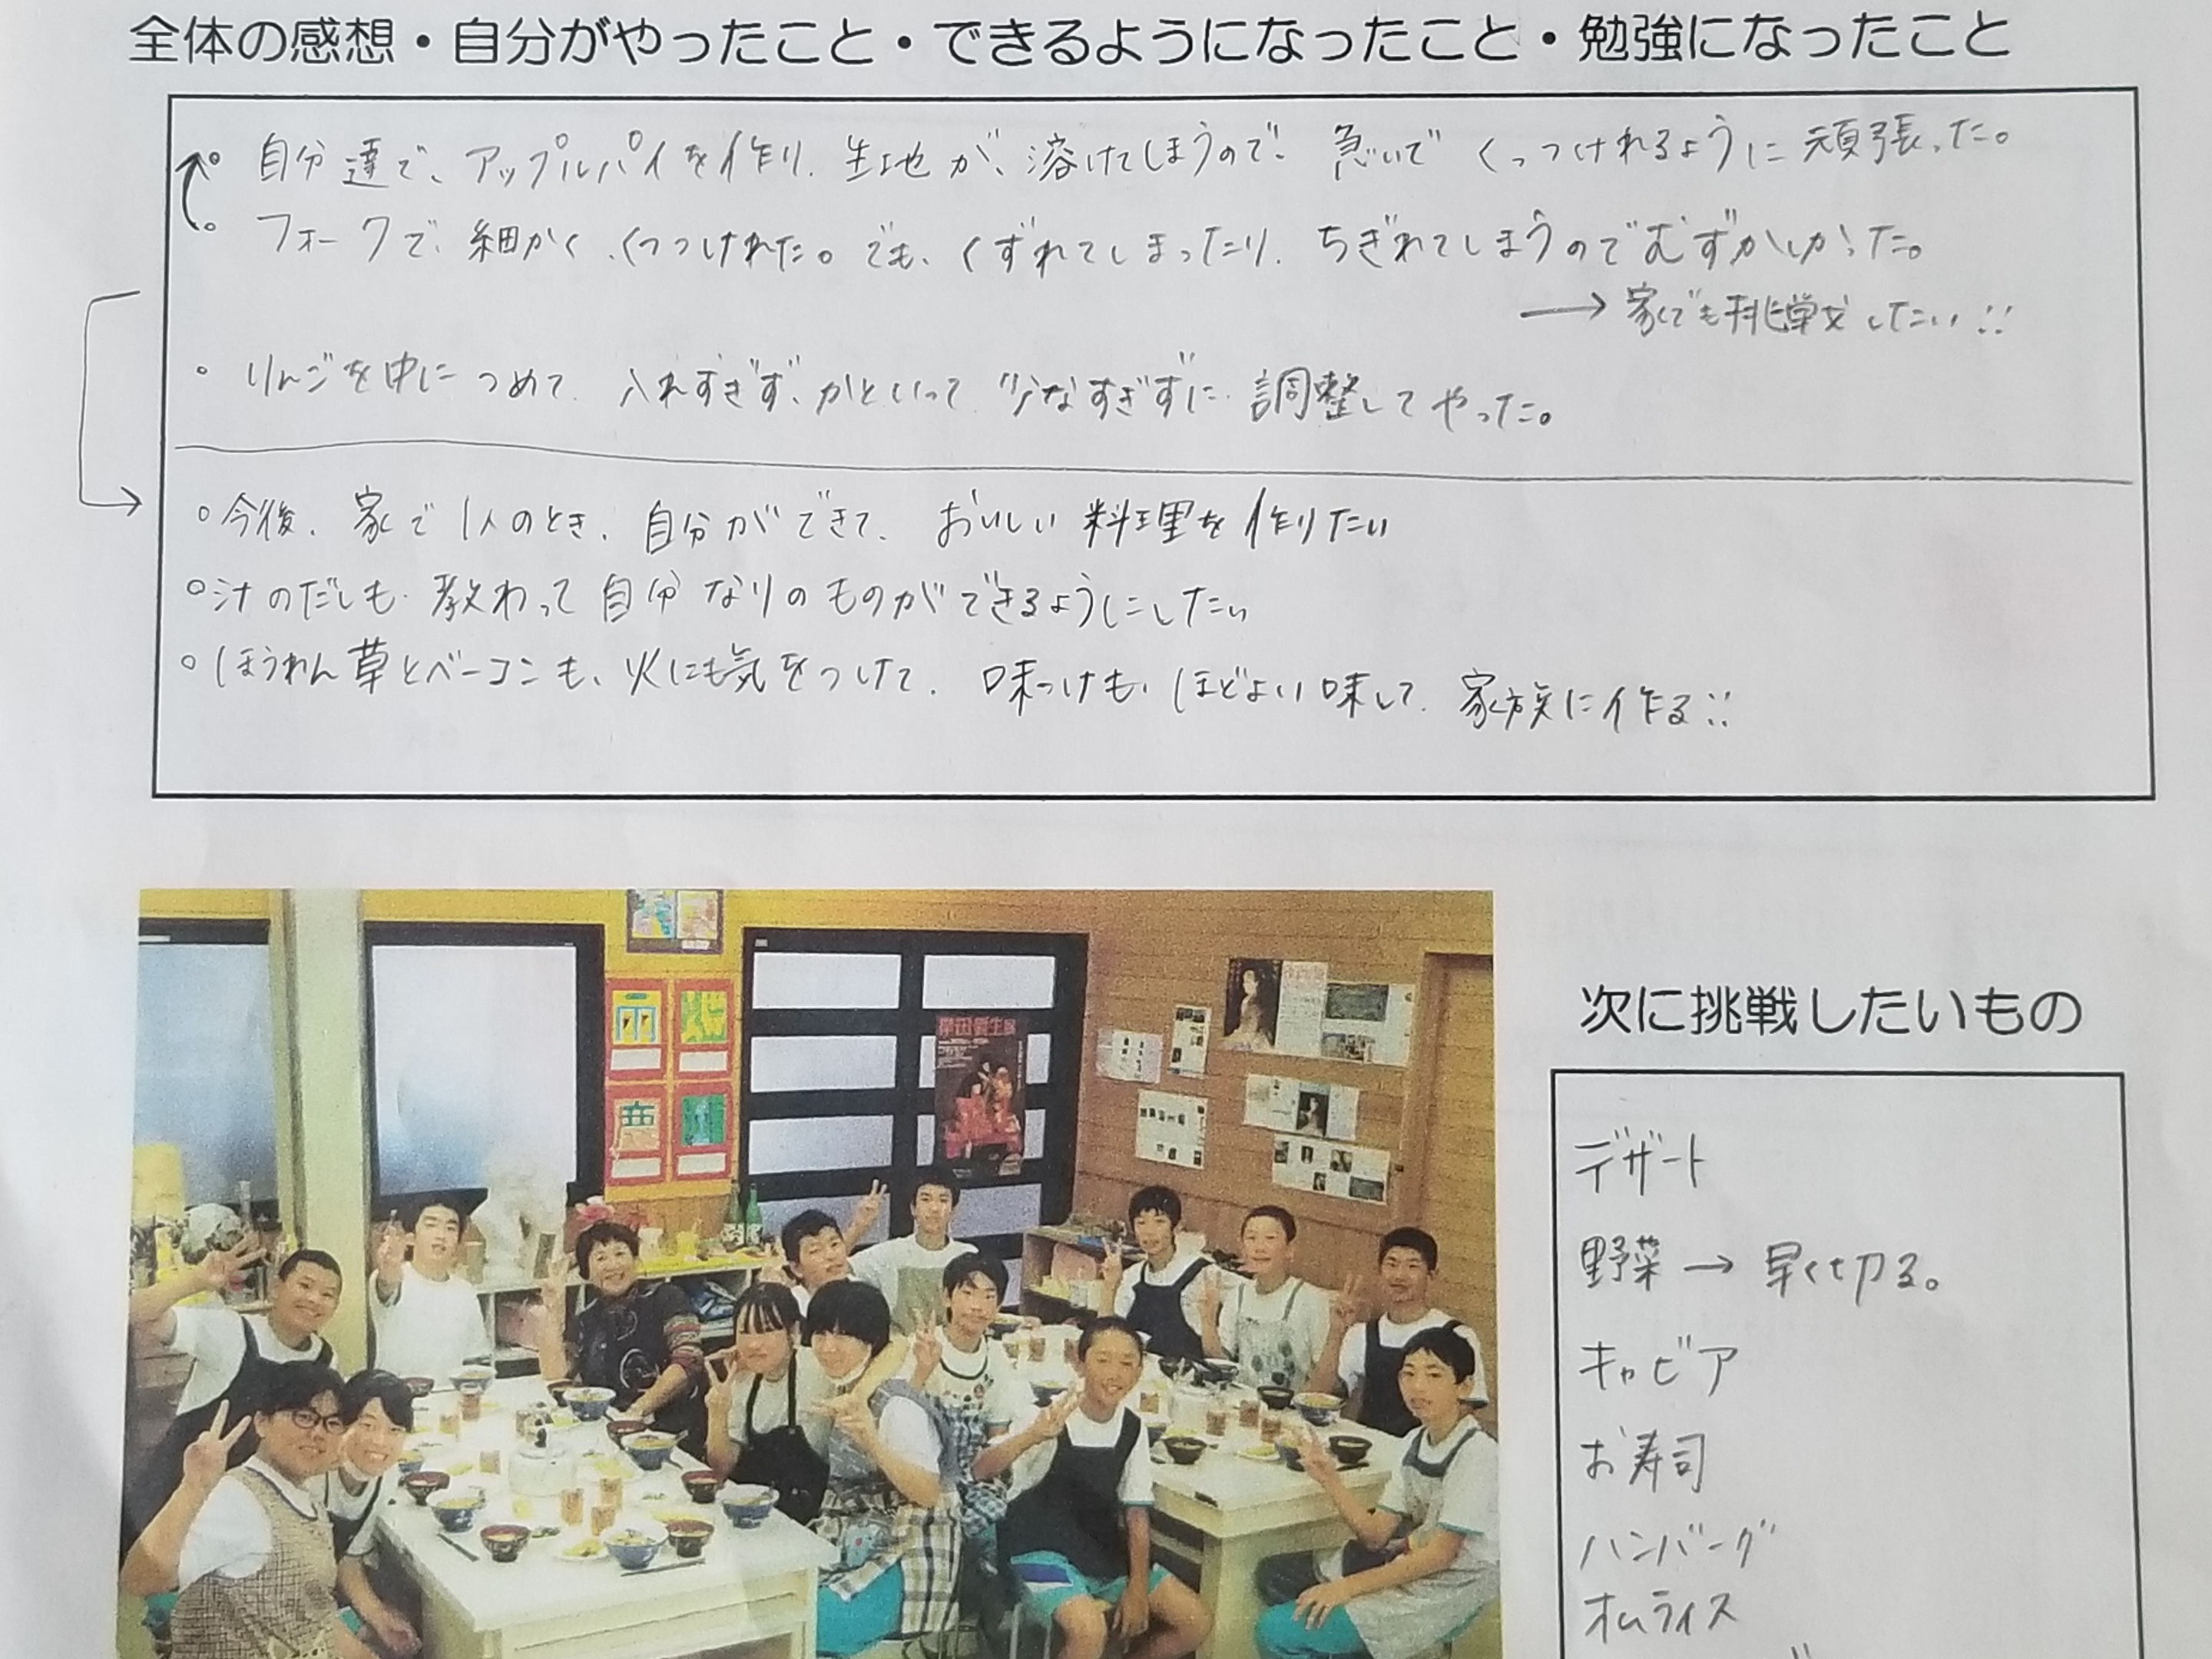 全体の感想・自分がやったこと・できるようになったこと・勉強になったこと
。自分達で、アップルパイを作り、生地が、溶けてしまうので、急いでくっつけれるように頑張った。
。フォークで、細かく、くっつけれた。でも、くずれてしまったり、ちぎれてしまうのでむずかしかった。
→家でも挑戦したい!!
。りんごを中につめて、入れすぎず、かといって、少なすぎずに、調整してやった。
。今後、家で1人のとき、自分ができて、おいしい料理を作りたい
。汁のだしも、教わって自分なりのものができるようにしたい
。ほうれん草とベーコンも、火にも気をつけて、味つけも、ほどよい味して、家族に作る!!
次に挑戦したいもの
デザート
野菜→早く切る。
キャビア
お寿司
ハンバーグ
オムライス